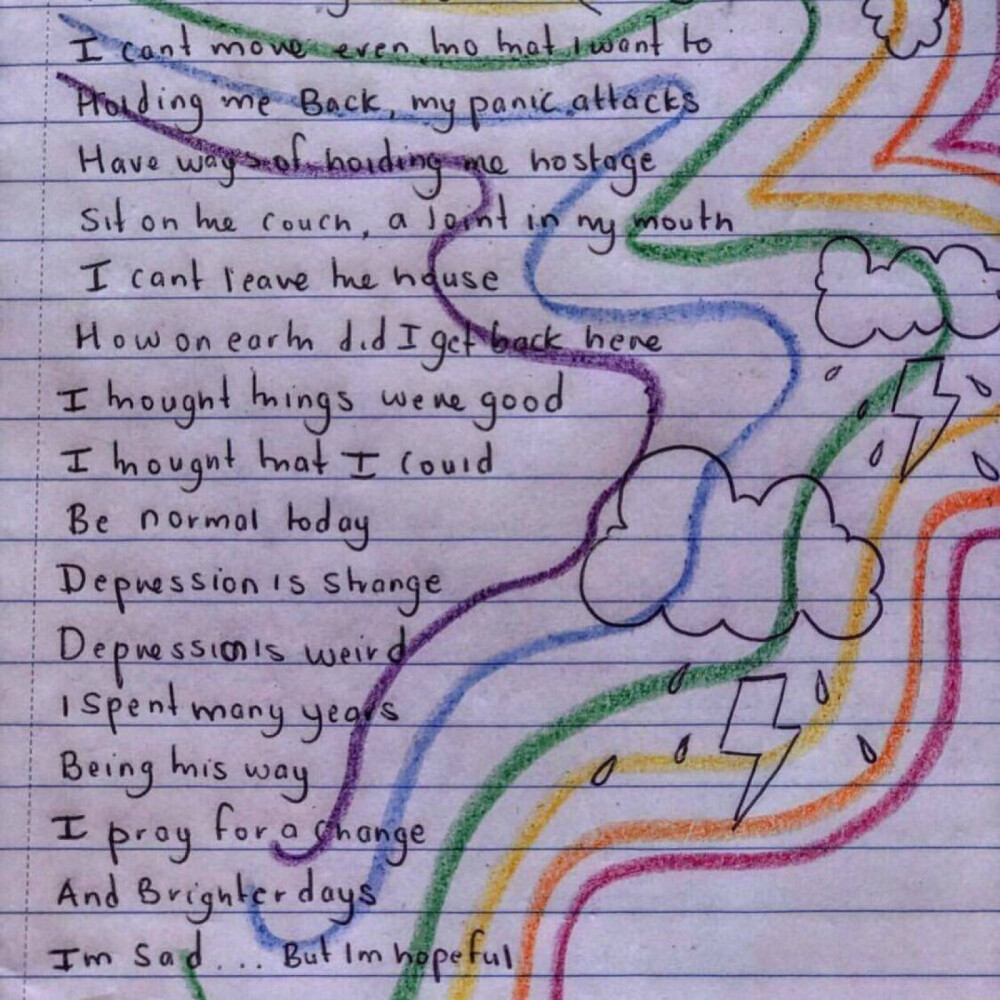 I cant move even tho that i want to
Holding me Back, my panic attacks
Have ways of holding me hostage
Sit on the couch, a Joint in my mouth
I cant leave the house
How on earth did I get back here
I thought things were good
I thought that I could
Be normal today
Depression is strange
Depression is weird
I spent many years
Being this way
I pray for a change
And Brighter days
Im Sad... But Im hopeful